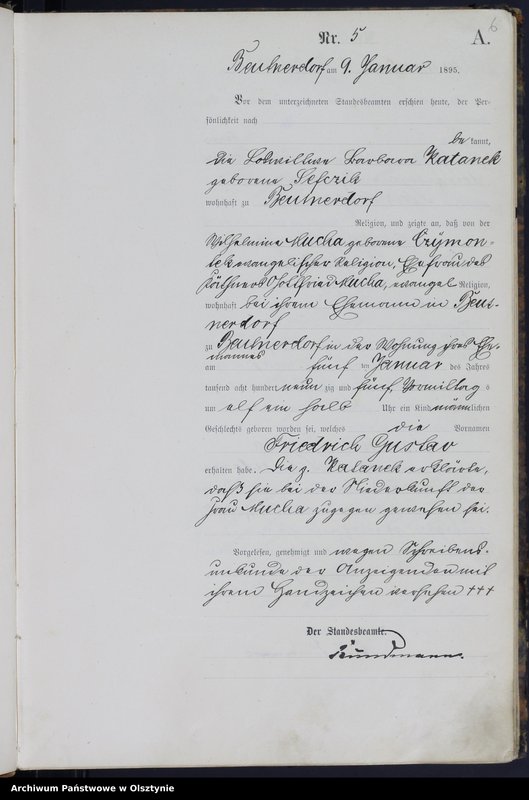 6
Nr. 5 A.
Beutnerdorf am 9. Januar 1895.
Vor dem unterzeichneten Standesbeamten erschien heute, der Per-
sönlichkeit nach
be kannt,
die Barbara Katanek
geborene Sefczik
wohnhaft zu Beutnerdorf
Religion, und zeigte an, daß von der
Wilhelmine Mucha geborene Czymon-
tek evangelischer Religion, Ehefrau des
Käthners Gottfried Mucha, evangel Religion,
wohnhaft bei ihrem Ehemann in Beut-
nerdorf
zu Beutnerdorf in der Wohnung ihres Ehe-
mannes
am fünf ten Januar des Jahres
tausend acht hundert neun zig und fünf, Vormittag s
um elf ein halb Uhr ein Kind männlichen
Geschlechts geboren worden sei, welches die Vornamen
Friedrich Gustav
erhalten habe. Die p. Katanek erklärte,
daß sie bei der Niederkunft der
Frau Mucha zugegen gewesen sei.
Vorgelesen, genehmigt und wegen Schreibens-
unkunde der Anzeigenden mit
ihrem Handzeichen versehen +++
Der Standesbeamte.
Archiwum Państwowe w Olsztynie